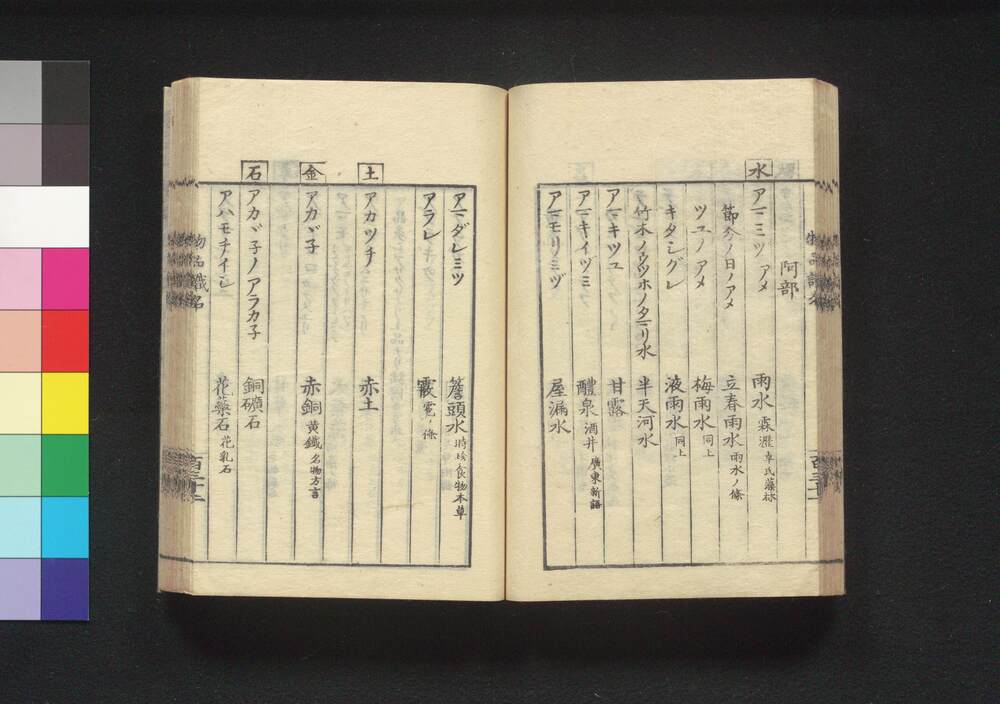 阿部
水
アマミツ アメ 雨水 霖瀝 卓氏藻林
節分ノ日ノアメ 立春雨水 雨水ノ條
ツユノアメ 梅雨水 同上
キタシグレ 液雨水 同上
竹木ノウツホノタマリ水 半天河水
アマキツユ 甘露
アマキイヅミ 醴泉 酒井 廣東新語
アマモリミヅ 屋漏水
アマダレミツ 簷頭水 時珍食物本草
アラレ 霰 雹ノ條
土
アカツチ 赤土
金
アカヾ子 赤銅 黄鐵 名物方言
石
アカヾ子ノアラカ子 銅礦石
アハモチイシ 花蘂石 花乳石
物品識名